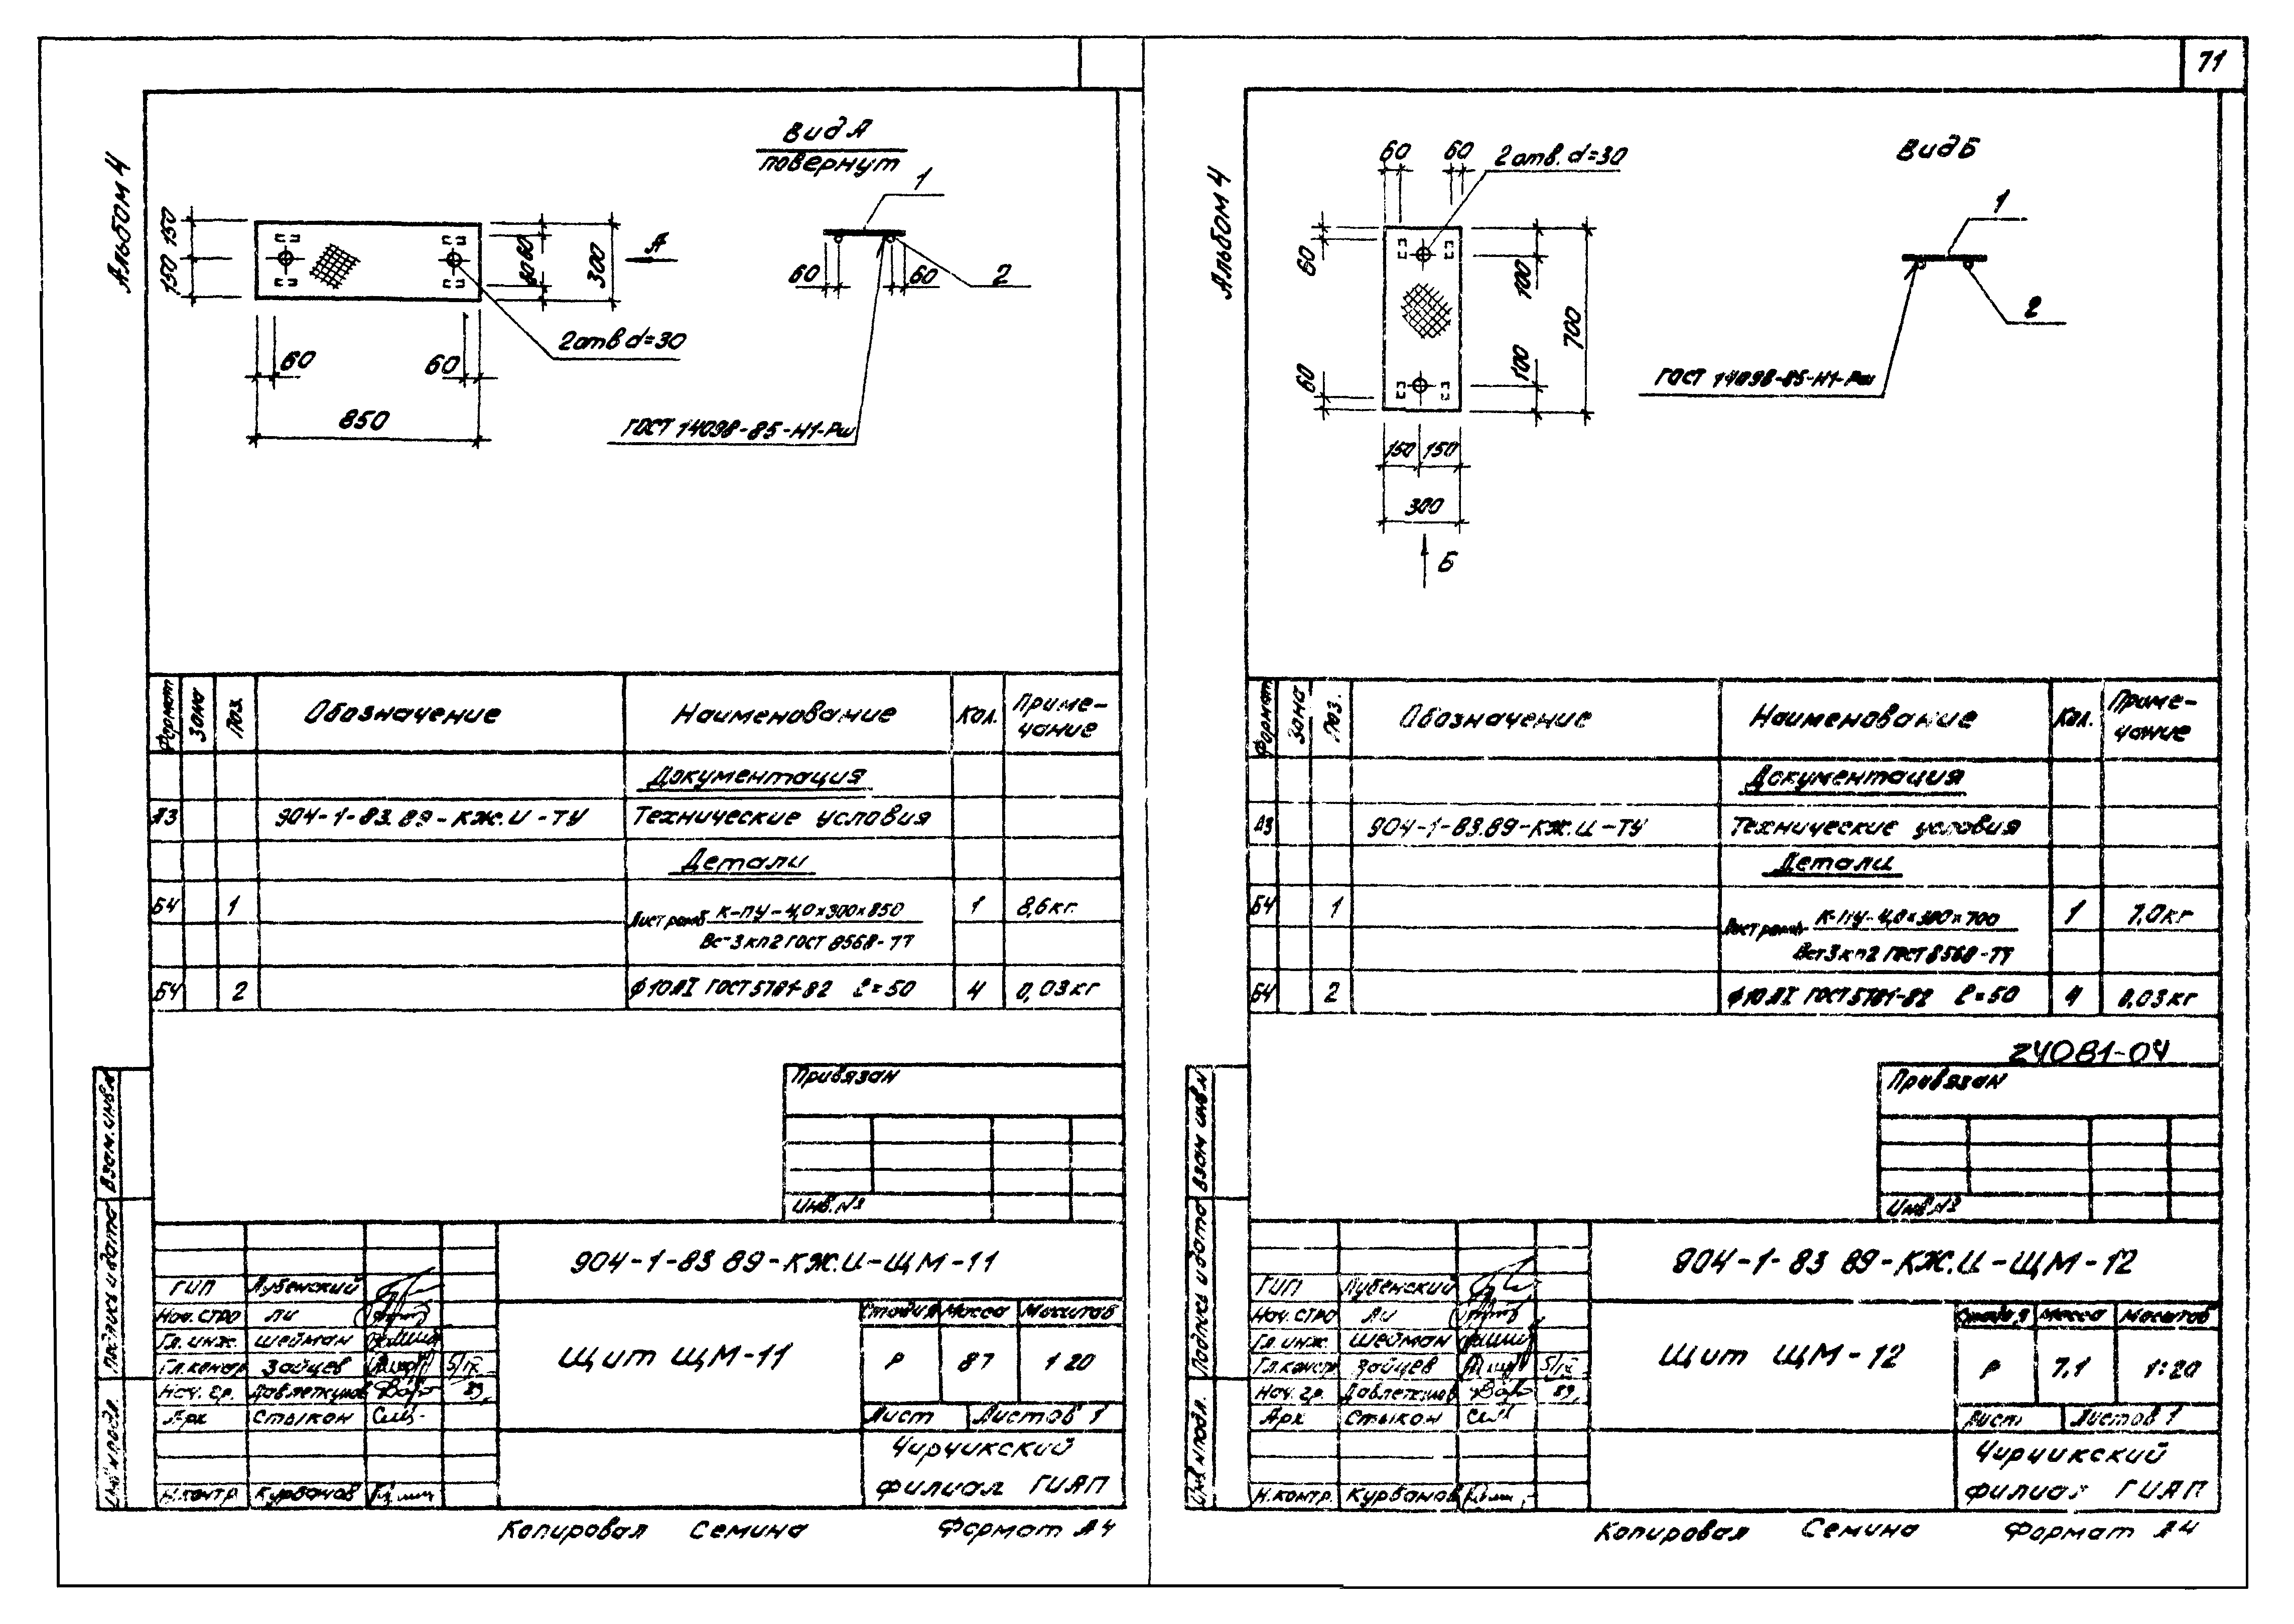 Альбом 4
Вид А
повернут
1
2
150
150
60
60
300
А
60
60
850
2 отв d=30
60
60
ГОСТ 14098-85-Н1-Рш
Формат Зона Поз. Обозначение Наименование Кол. Приме-
чание
Документация
А3 904-1-83.89-КЖ.И-ТУ Технические условия
Детали
БЧ 1 Лист ромб К-ПУ-4,0×300×850 1 8,6кг
Вст3кп2 ГОСТ 8568-77
БЧ 2 ф10АI ГОСТ5781-82 ℓ=50 4 0,03кг
Привязан
Инв. №
Взам. инв. №
Подпись и дата
Инв № подл.
904-1-83 89-КЖ.И-ЩМ-11
ГИП Лубенский
Нач. СТРО Ли
Гл. инж. Шейман
Гл. констр Зайцев 5/IX
Нач. гр. Давлеткулов 89,
Арх Стыкон
Н.контр Курбанов
Щит ЩМ-11
Стадия Масса Масштаб
Р 87 1 20
Лист Листов 1
Чирчикский
филиал ГИАП
Копировал Семина Формат А4
71
Альбом 4
60 60 2 отв. d=30
Вид Б
1
2
60
60
100
100
700
150 150
300
Б
ГОСТ 14098-85-Н1-Рш
Формат Зона Поз. Обозначение Наименование Кол. Приме-
чание
Документация
А3 904-1-83.89-КЖ.И-ТУ Технические условия
Детали
БЧ 1 Лист ромб К-ПУ-4,0×300×700 1 7,0кг
Вст3кп2 ГОСТ 8568-77
БЧ 2 ф10АI ГОСТ5781-82 ℓ=50 4 0,03кг
24081-04
Привязан
Инв №
Взам инв. №
Подпись и дата
Инв № подл.
904-1-83 89-КЖ.И-ЩМ-12
ГИП Лубенский
Нач. СТРО Ли
Гл. инж. Шейман
Гл. констр Зайцев 5/IX
Нач. гр. Давлеткулов 89,
Арх Стыкон
Н.контр. Курбанов
Щит ЩМ-12
Стадия Масса Масштаб
Р 7,1 1:20
Лист Листов 1
Чирчикский
филиал ГИАП
Копировал Семина Формат А4